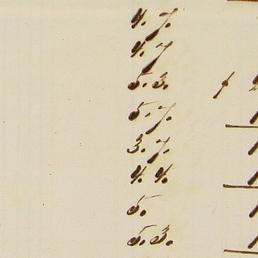 4. 7.
4. 7
5. 3.
5. 7.
3. 7.
4. 4.
5.
5. 3.